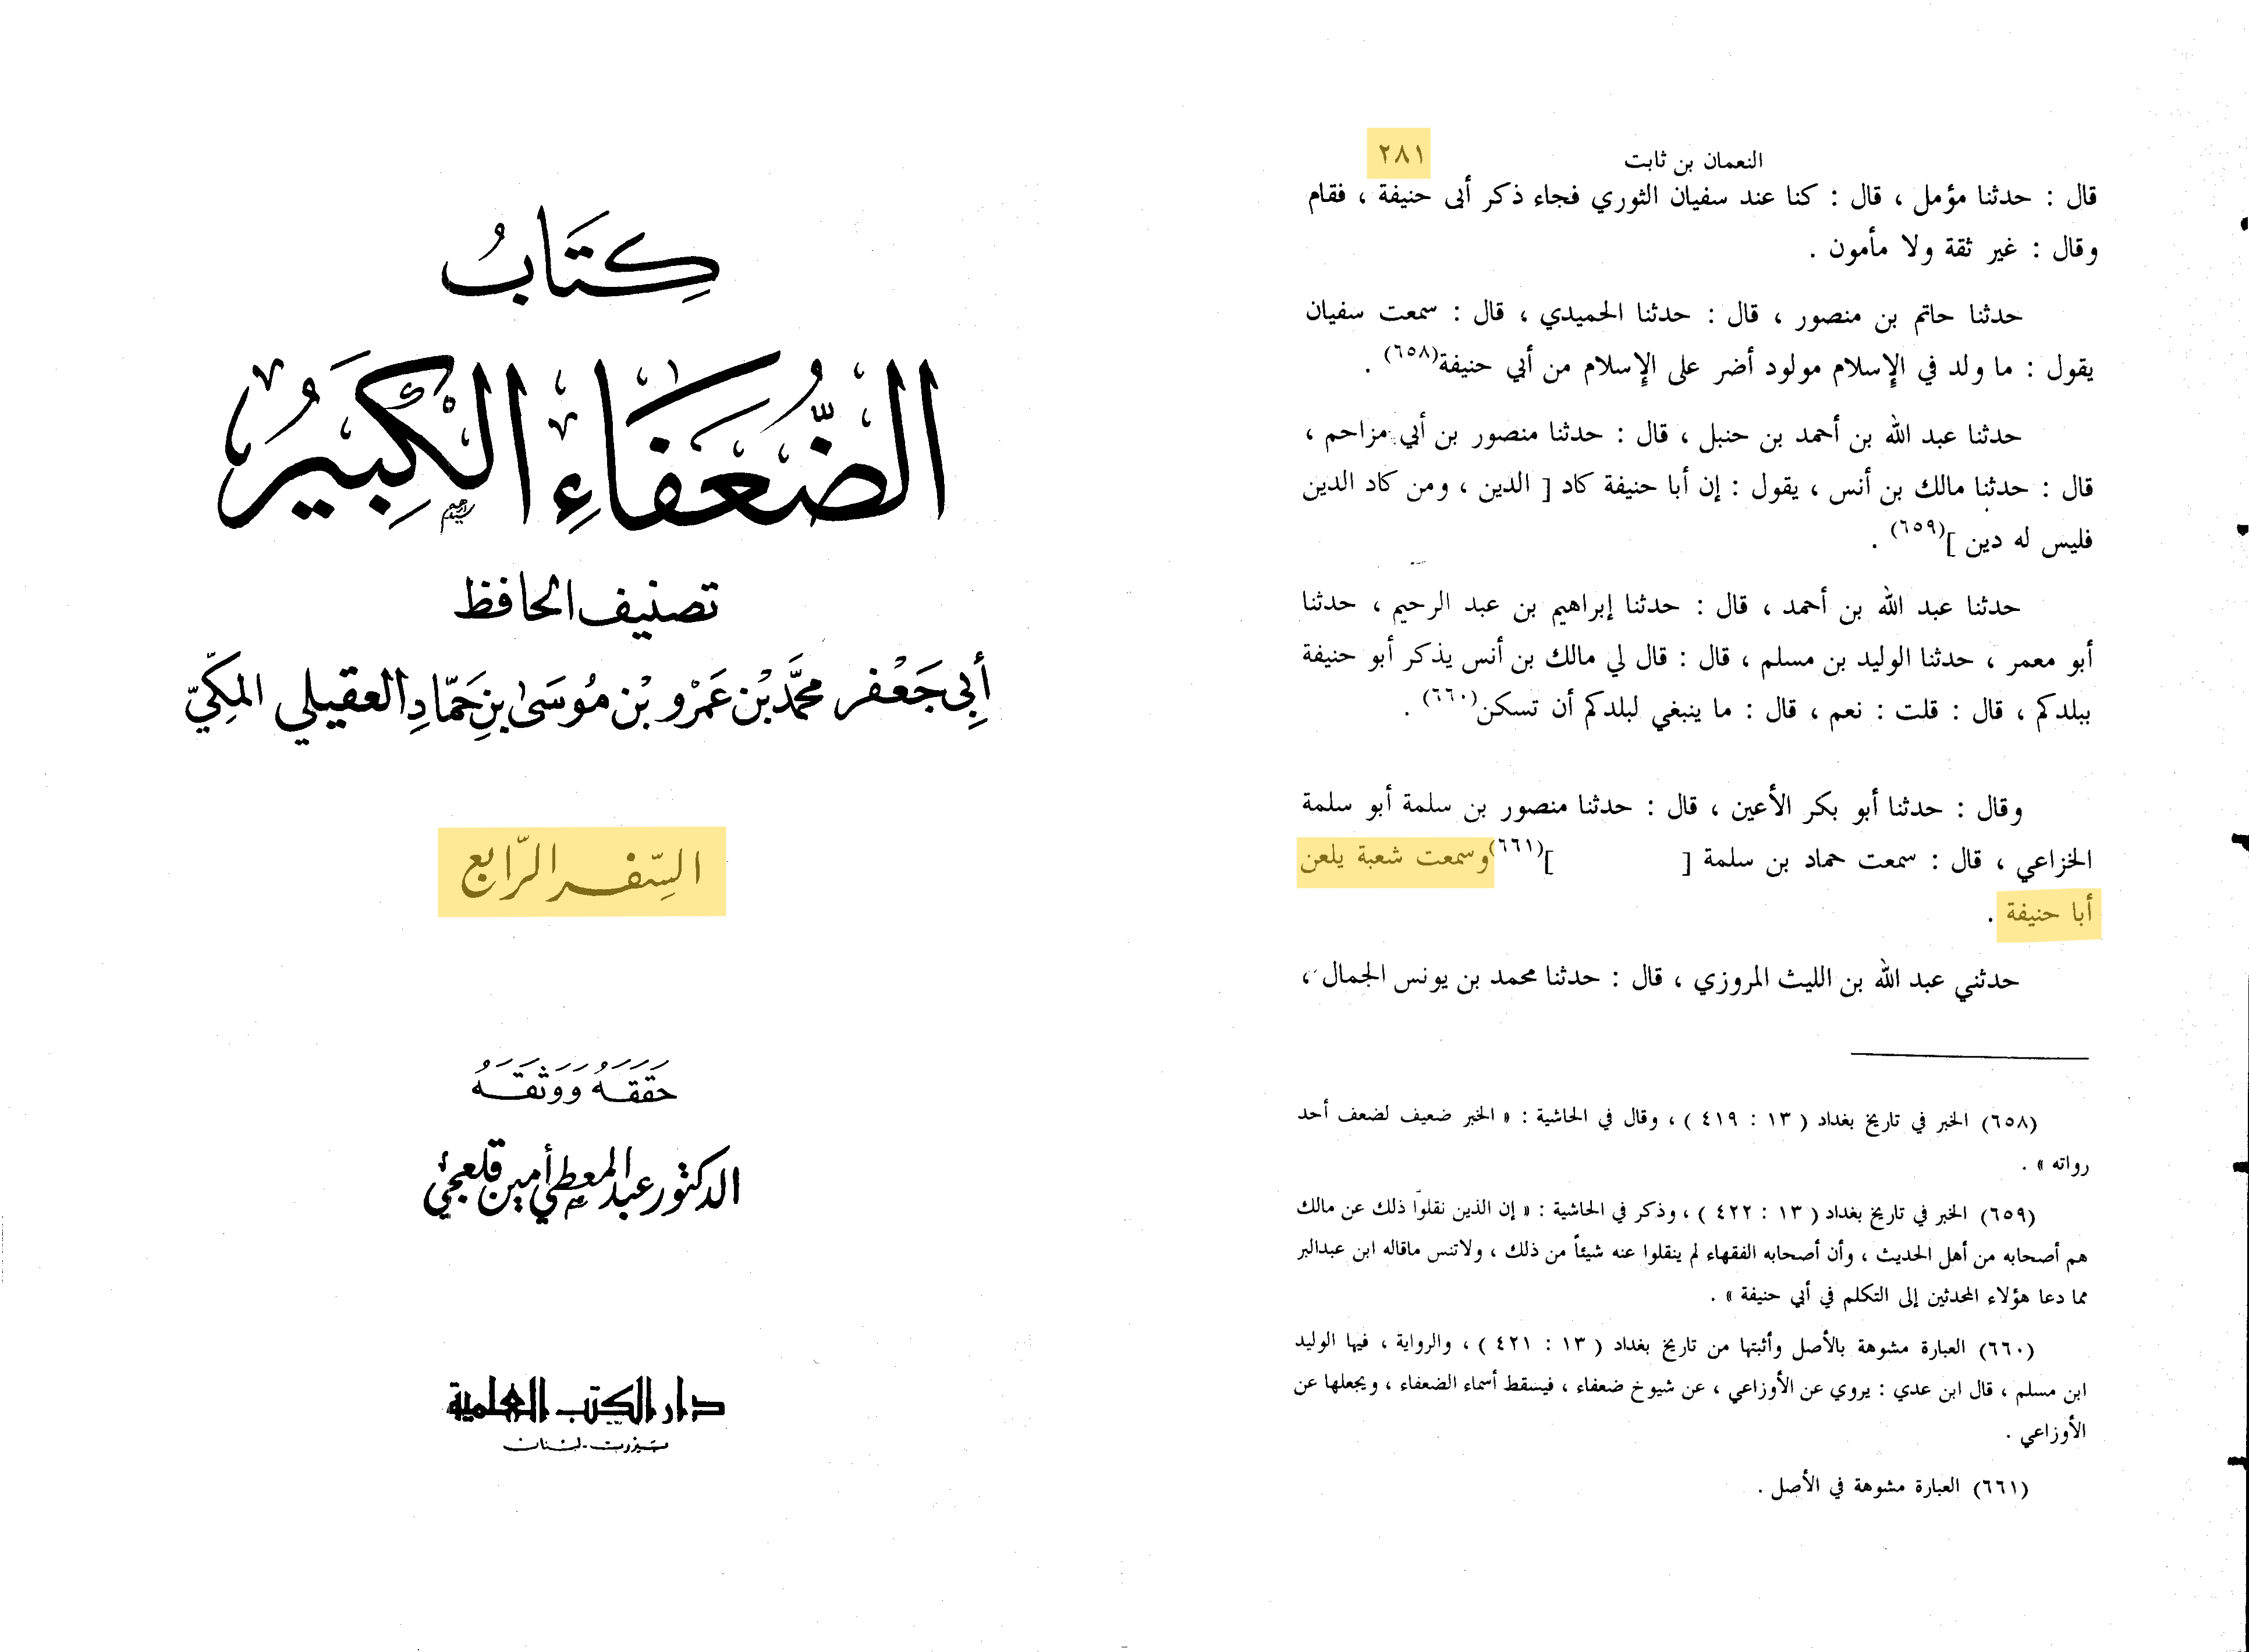 كِتَابُ
الضُّعَفَاءِ الْكَبِيرُ
تصنيف الحافظ
أَبِي جَعْفَر محمَّد بْن عَمْرو بْن مُوسَىٰ بنِ حَمّادِ العقيلي المكِيّ
السِّفر الرَّابع
حَقَقَهُ وَوَثقَهُ
الدكتور عبد المعطي أمين قلعجي
دار الكتب العلمية
بيروت - لبنان
النعمان بن ثابت ٢٨١
قال : حدثنا مؤمل ، قال : كنا عند سفيان الثوري فجاء ذكر أبى حنيفة ، فقام
وقال : غير ثقة ولا مأمون .
حدثنا حاتم بن منصور ، قال : حدثنا الحميدي ، قال : سمعت سفيان
يقول : ما ولد في الإسلام مولود أضر على الإسلام من أبي حنيفة(٦٥٨) .
حدثنا عبد الله بن أحمد بن حنبل ، قال : حدثنا منصور بن أبي مزاحم ،
قال : حدثنا مالك بن أنس ، يقول : إن أبا حنيفة كاد [ الدين ، ومن كاد الدين
فليس له دين ](٦٥٩) .
حدثنا عبد الله بن أحمد ، قال : حدثنا إبراهيم بن عبد الرحيم ، حدثنا
أبو معمر ، حدثنا الوليد بن مسلم ، قال : قال لي مالك بن أنس يذكر أبو حنيفة
ببلدكم ، قال : قلت : نعم ، قال : ما ينبغي لبلدكم أن تسكن(٦٦٠) .
وقال : حدثنا أبو بكر الأعين ، قال : حدثنا منصور بن سلمة أبو سلمة
الخزاعي ، قال : سمعت حماد بن سلمة [ ](٦٦١) وسمعت شعبة يلعن
أبا حنيفة .
حدثني عبد الله بن الليث المروزي ، قال : حدثنا محمد بن يونس الجمال ،
(٦٥٨) الخبر في تاريخ بغداد ( ١٣ : ٤١٩ ) ، وقال في الحاشية : « الخبر ضعيف لضعف أحد
رواته » .
(٦٥٩) الخبر في تاريخ بغداد ( ١٣ : ٤٢٢ ) ، وذكر في الحاشية : « إن الذين نقلوا ذلك عن مالك
هم أصحابه من أهل الحديث ، وأن أصحابه الفقهاء لم ينقلوا عنه شيئاً من ذلك ، ولاتنس ماقاله ابن عبدالبر
مما دعا هؤلاء المحدثين إلى التكلم في أبي حنيفة » .
(٦٦٠) العبارة مشوهة بالأصل وأثبتها من تاريخ بغداد ( ١٣ : ٤٢١ ) ، والرواية ، فيها الوليد
ابن مسلم ، قال ابن عدي : يروي عن الأوزاعي ، عن شيوخ ضعفاء ، فيسقط أسماء الضعفاء ، ويجعلها عن
الأوزاعي .
(٦٦١) العبارة مشوهة في الأصل .